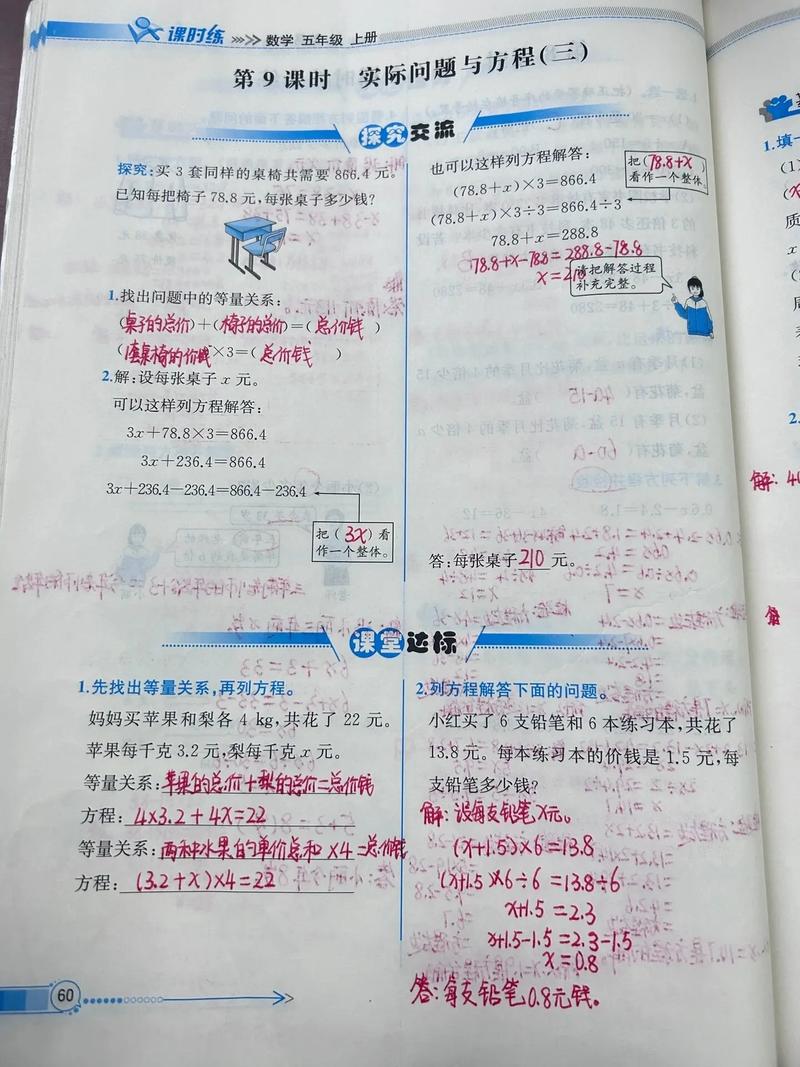 课时练 数学 五年级 上册
第9课时 实际问题与方程(三)
探究交流
探究:买3套同样的桌椅共需要866.4元。
已知每把椅子78.8元,每张桌子多少钱?
1.找出问题中的等量关系:
(桌子的总价)+(椅子的总价)=(总价钱)
(套桌椅的价钱)×3=(总价钱)
2.解:设每张桌子x元。
可以这样列方程解答:
3x+78.8×3=866.4
3x+236.4=866.4
3x+236.4-236.4=866.4-236.4
把(3x)看
作一个整体。
也可以这样列方程解答:
把(78.8+x)
看作一个整体。
(78.8+x)×3=866.4
(78.8+x)×3÷3=866.4÷3
78.8+x=288.8
78.8+x-78.8=288.8-78.8
x=210
请把解答过程
补充完整。
答:每张桌子210元。
课堂达标
1.先找出等量关系,再列方程。
妈妈买苹果和梨各4 kg,共花了22元。
苹果每千克3.2元,梨每千克x元。
等量关系:苹果的总价+梨的总价=总价钱
方程:4×3.2+4x=22
等量关系:两种水果的单价总和×4=总价钱
方程:(3.2+x)×4=22
2.列方程解答下面的问题。
小红买了6支铅笔和6本练习本,共花了
13.8元。每本练习本的价钱是1.5元,每
支铅笔多少钱?
解:设每支铅笔x元。
(x+1.5)×6=13.8
(x+1.5)×6÷6=13.8÷6
x+1.5=2.3
x+1.5-1.5=2.3-1.5
x=0.8
答:每支铅笔0.8元钱。
60
1.填一
(1
2.
解:40